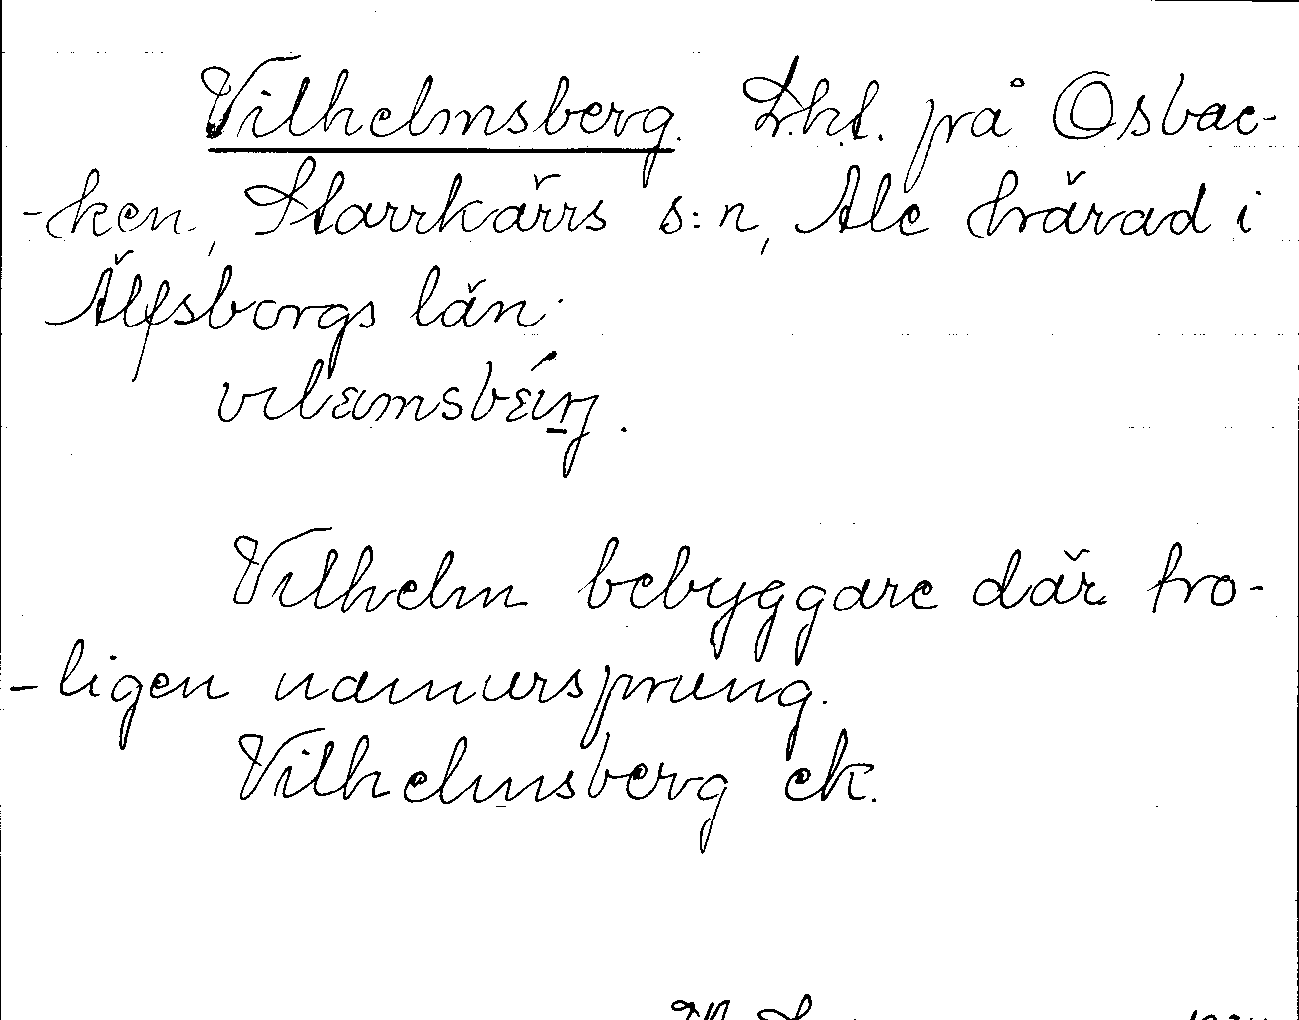 Vilhelmsberg. Lht. på Osbac-
-ken, Starrkärrs s:n, Ale härad i
Älfsborgs län.
Vilhelm bebyggare där tro-
-ligen namursprung.
Vilhelmsberg ek.